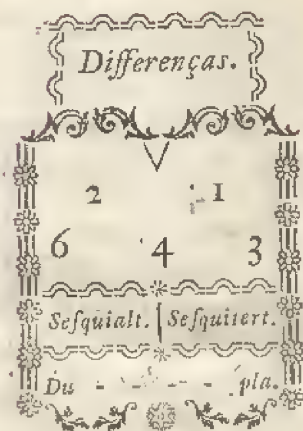 Differenças.
2 1
6 4 3
Seſquialt. Seſquitert.
Du - - - - pla.